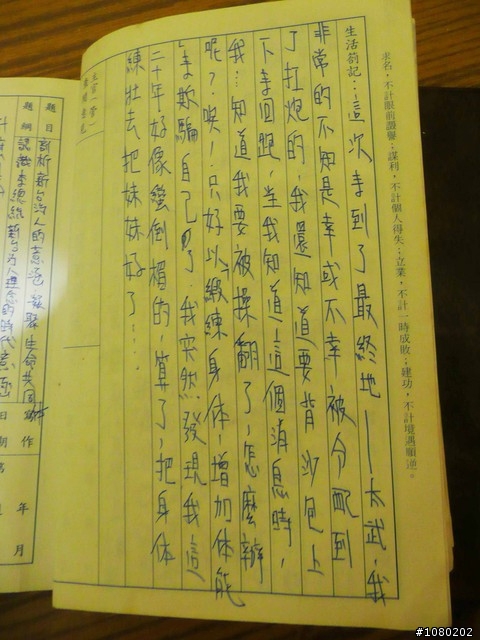 求名，不計眼前譭譽；謀利，不計個人得失；立業，不計一時成敗；建功，不計境遇順逆。
生活箚記：這次來到了最終地——太武，我
非常的不知是幸或不幸被分配到
了扛炮的，我還知道要背沙包上
下來回跑，當我知道這個消息時，
我…知道我要被操翻了，怎麼辦
呢？唉！只好以緞練身体，增加体能
來欺騙自己了，我突然發現我這
二十年好像蠻倒楣的，算了，把身体
練壯去把妹妹好了……
題目
剖析新台灣人的意涵 凝聚生命共同
作
題綱
日期
年
月
#1080202